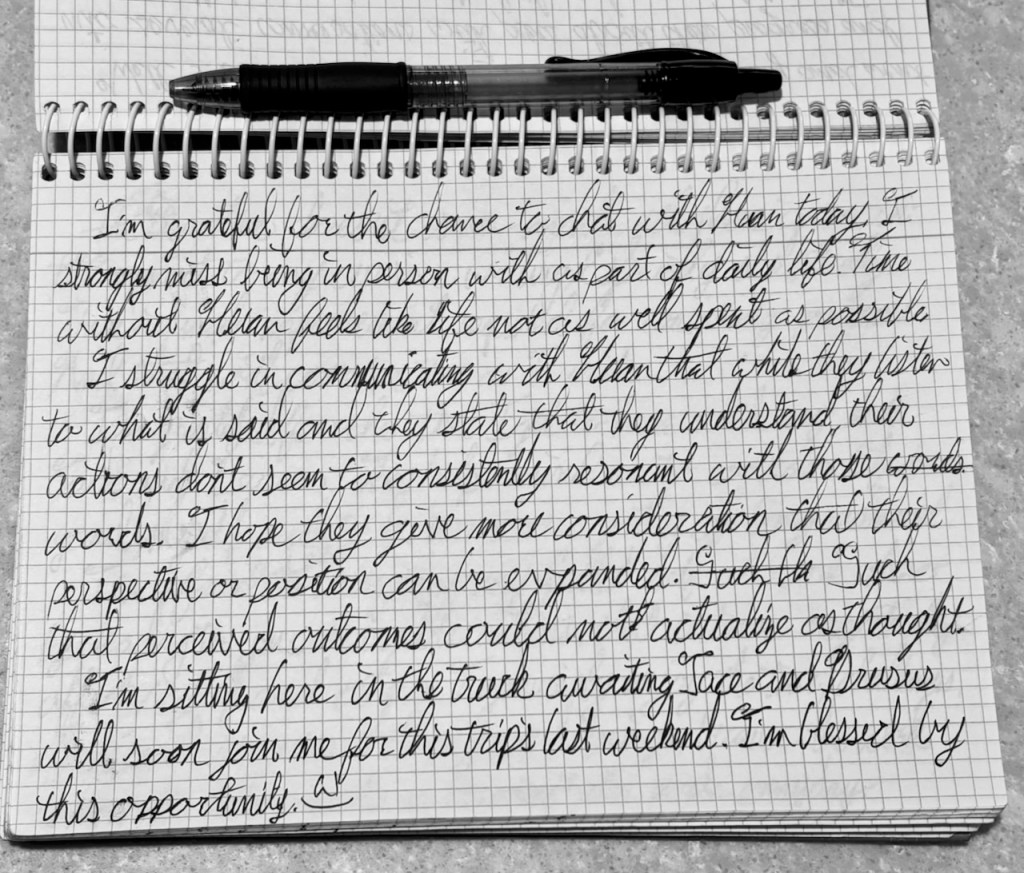 I'm grateful for the chance to chat with today. I
strongly miss being in person with as part of daily life. Time
without feels like life not as well spent as possible
I struggle in communicating with that while they listen
to what is said and they state that they understand, their
actions don't seem to consistently resonant with those words
words. I hope they give more consideration that their
perspective or position can be expanded. Such th Such
that perceived outcomes could not actualize as thought.
I'm sitting here in the truck awaiting Jace and Drusus
will soon join me for this trip's last weekend. I'm blessed by
this opportunity.